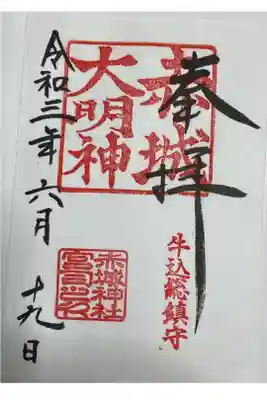 奉拝
赤城
大明神
牛込総鎮守
赤城神社
宮司之印
令和三年六月
十九日